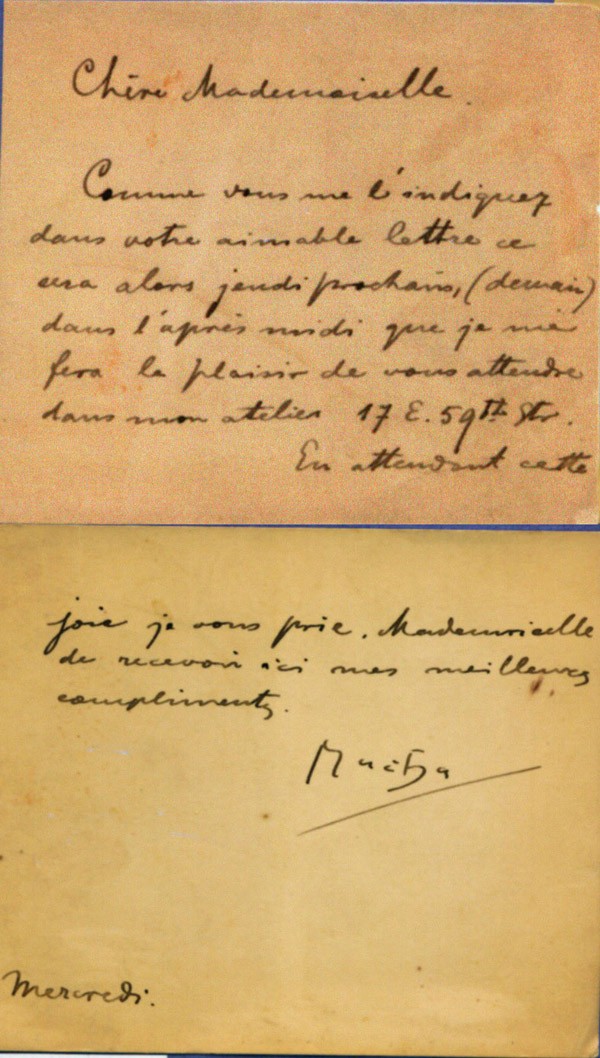 Chère Mademoiselle.
Comme vous me l'indiquez
dans votre aimable lettre ce
sera alors jeudi prochain, (demain)
dans l'après midi que je me
fera le plaisir de vous attendre
dans mon atelier 17 E. 59th Str.
En attendant cette
joie je vous prie, Mademoiselle
de recevoir ici mes meilleurs
compliments.
Mercredi.